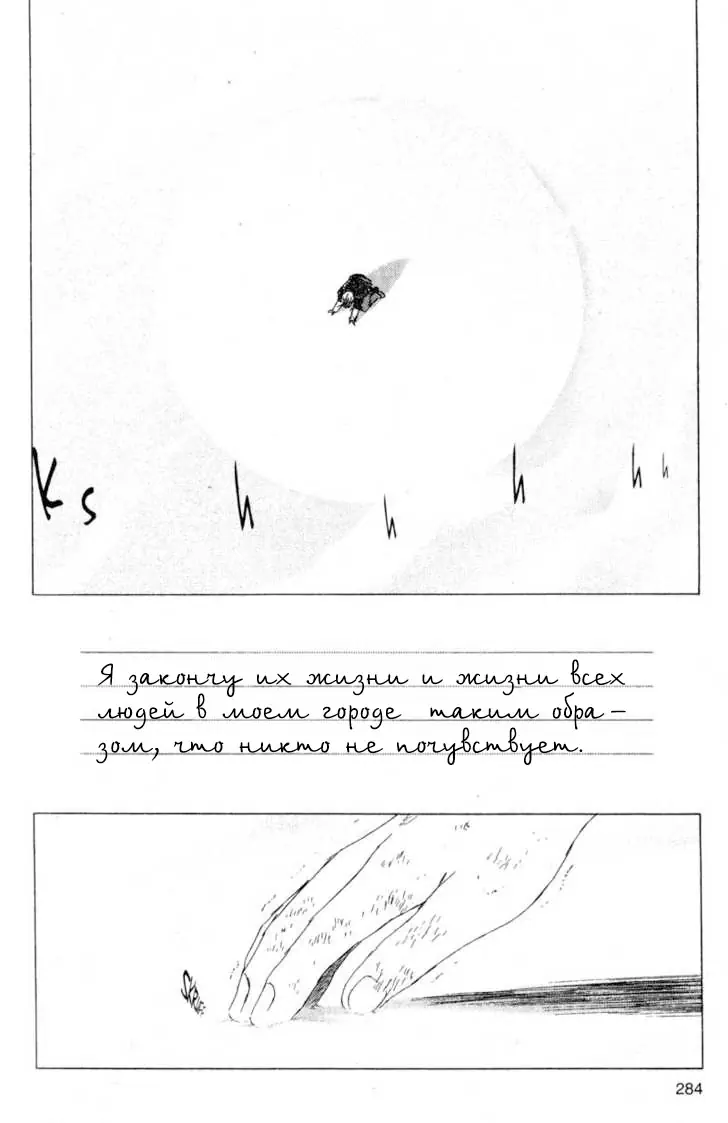 Ks h h h h h
Я закончу их жизни и жизни всех
людей в моем городе таким обра-
зом, что никто не почувствует.
SKRUFF
284